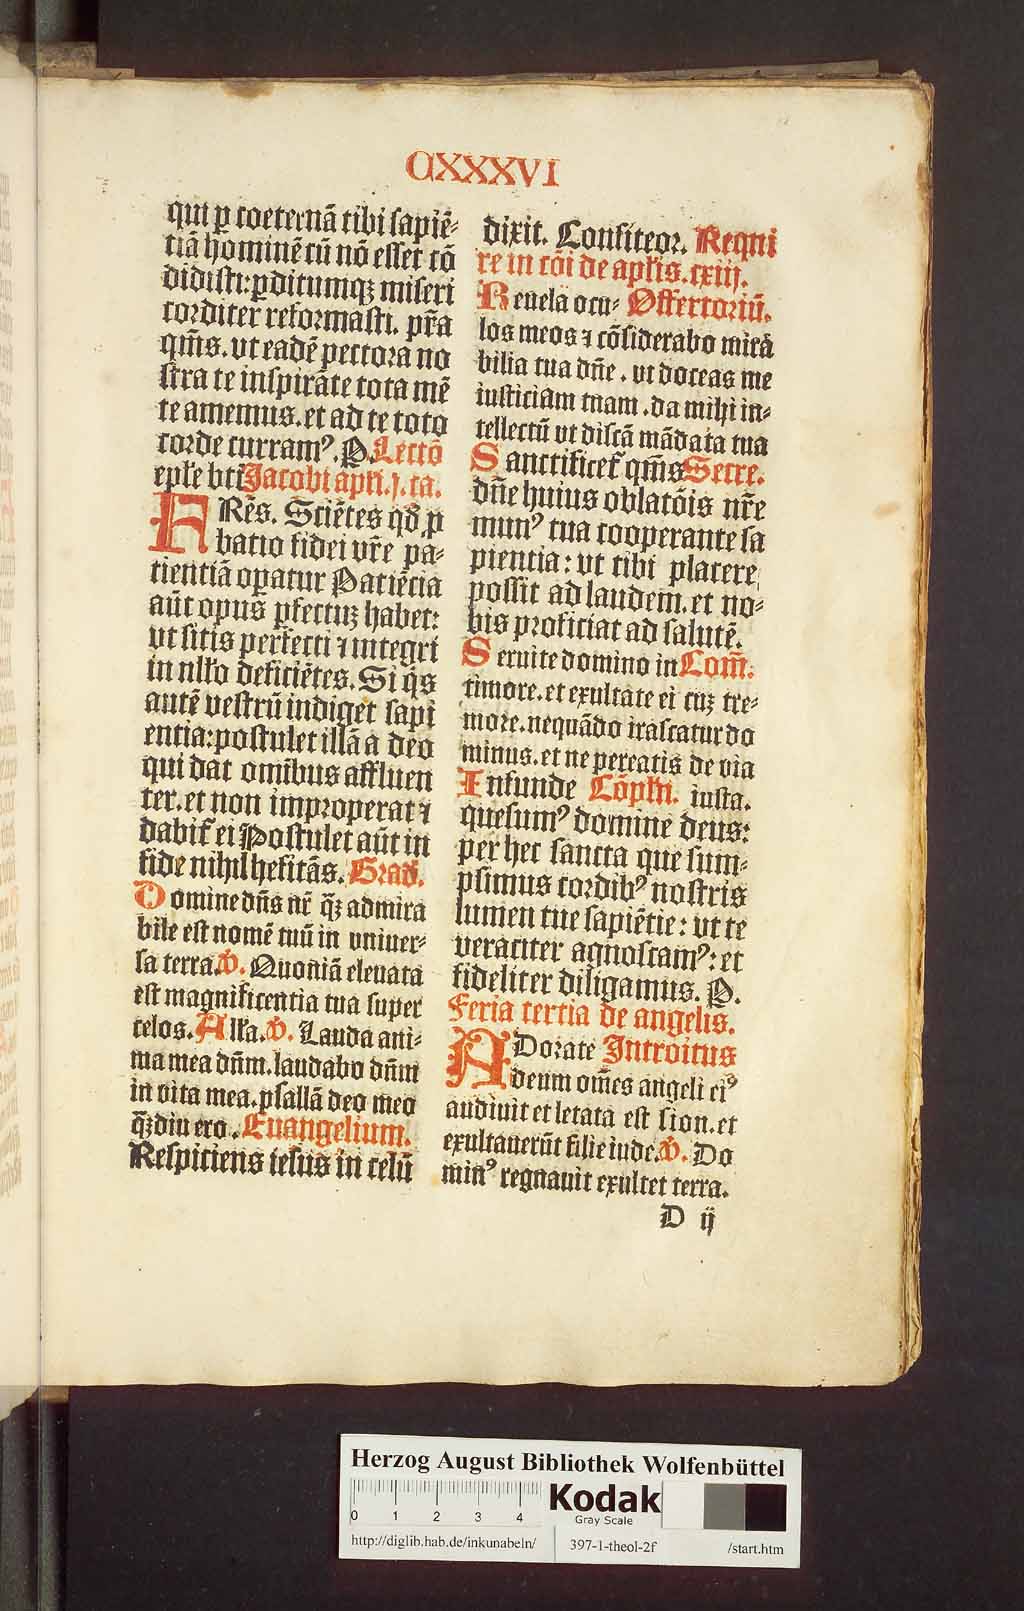 CXXXVI
qui ꝑ coeternā tibi sapiē-
tiā hominē cū nō esset cō
didisti: ꝑditumqꝫ miseri
corditer reformasti. pr̄a
qm̄s. vt eadē pectora no
stra te inspirāte tota mē
te amemus. et ad te toto
corde curramꝰ. P. Lectō
epl̄e bti Jacobi apl̄i. j. ca.
FRēs. Sciētes qđ ꝓ
batio fidei vr̄e pa-
cientiā oꝑatur Patiēcia
aūt opus ꝑfectuꝫ habet:
vt sitis perfecti ⁊ integri
in nllo deficiētes. Si q̄s
autē vestrū indiget sapi
entia: postulet illā a deo
qui dat omībus affluen
ter. et non improperat ⁊
dabit̄ ei Postulet aūt in
fide nihil hesitās. Grad̄.
Domine dn̄s nr̄ q̄ꝫ admira
bile est nomē tuū in vniuer-
sa terra. V̄. Quoniā eleuata
est magnificentia tua super
celos. All̄a. V̄. Lauda ani-
ma mea dn̄m. laudabo dn̄m
in vita mea. psallā deo meo
q̄ꝫdiu ero. Euangelium.
Respiciens iesus in celū
dixit. Confiteor. Requi
re in cōi de apl̄is. cxiij.
Reuela ocu- Offertoriū.
los meos ⁊ cōsiderabo mirā
bilia tua dn̄e. vt doceas me
iusticiam tuam. da mihi in-
tellectū vt discā mādata tua
Sanctificet̄ qm̄s Secre.
dn̄e huius oblatōis nr̄e
munꝰ tua cooperante sa
pientia: vt tibi placere
possit ad laudem. et no-
bis proficiat ad salutē.
Seruite domino in Com̄.
timore. et exultate ei cuꝫ tre-
more. nequādo irascatur do
minus. et ne pereatis de via
Infunde Cōpl̄n. iusta.
quesumꝰ domine deus:
per hec sancta que sum-
psimus cordibꝰ nostris
lumen tue sapiētie: vt te
veraciter agnoscamꝰ: et
fideliter diligamus. P.
Feria tertia de angelis.
ADorate Introitus
deum om̄es angeli eiꝰ
audiuit et letata est sion. et
exultauerūt filie iude. V̄. Do
minꝰ regnauit exultet terra.
D ij
Herzog August Bibliothek Wolfenbüttel
0 1 2 3 4
Kodak
Gray Scale
http://diglib.hab.de/inkunabeln/ 397-1-theol-2f /start.htm